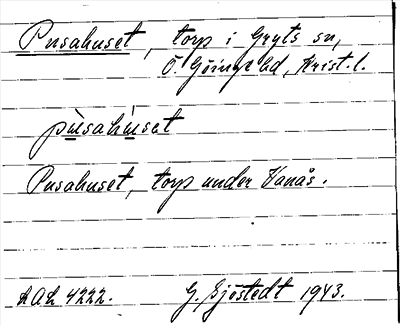 Pusahuset, torp i Gryts sn,
Ö. Göinge hd, Krist. l.
pùsahùset
Pusahuset, torp under Vanås.
LAL 4222. G. Sjöstedt 1943.